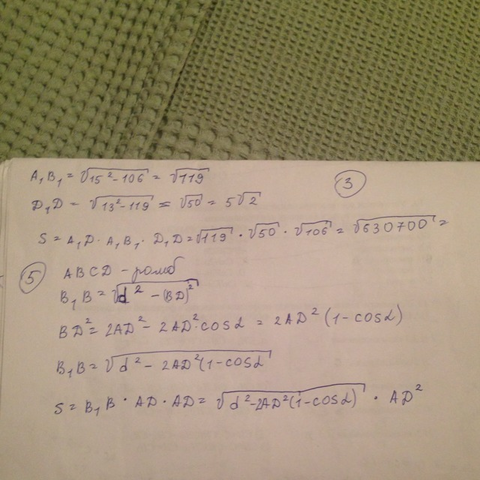 A₁B₁ = √(15² - 106) = √119
③
D₁D = √(13² - 119) = √50 = 5√2
S = A₁D · A₁B₁ · D₁D = √119 · √50 · √106 = √630700 =
⑤ ABCD - ромб
B₁B = √(d² - (BD)²)
BD² = 2AD² - 2AD² cosα = 2AD² (1 - cosα)
B₁B = √(d² - 2AD²(1 - cosα)
S = B₁B · AD · AD = √(d² - 2AD²(1 - cosα)) · AD²